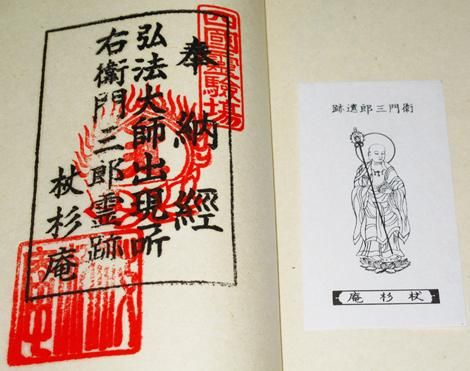 四國霊驗場
奉納經
弘法大師出現所
右衛門三郎霊跡
杖杉庵
衛門三郎遺跡
杖杉庵